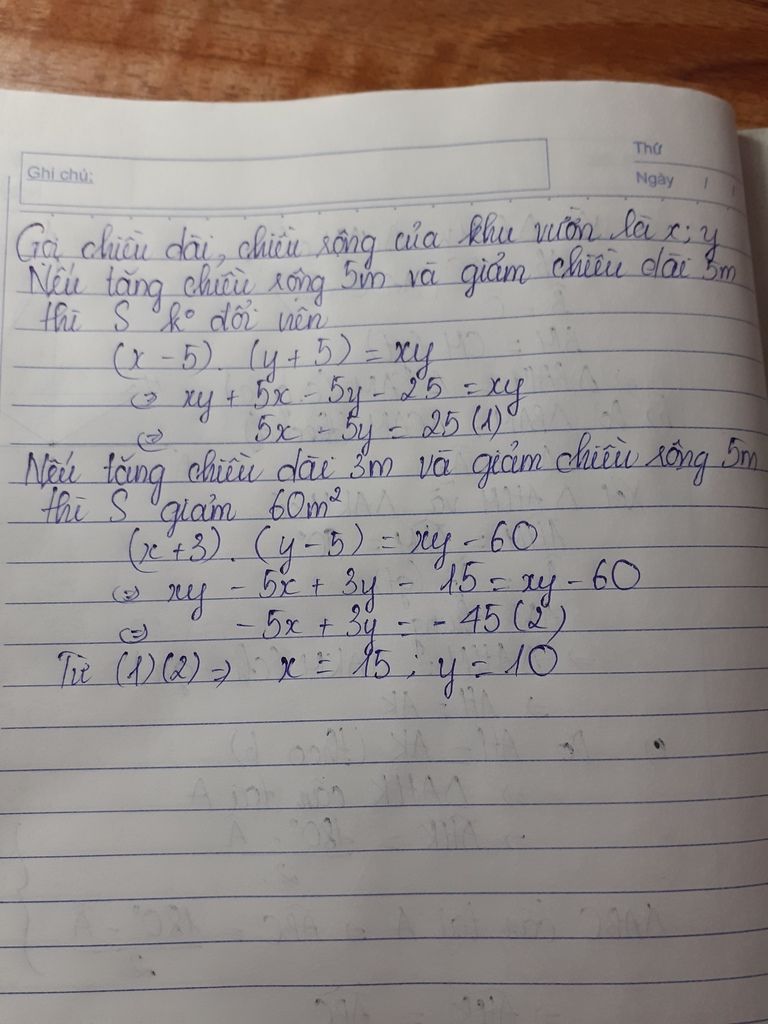 Thứ
Ghi chú:
Ngày / /
Gọi chiều dài, chiều rộng của khu vườn là x; y
Nếu tăng chiều rộng 5m và giảm chiều dài 5m
thì S k° đổi nên
(x - 5). (y + 5) = xy
<=> xy + 5x - 5y - 25 = xy
<=> 5x - 5y = 25 (1)
Nếu tăng chiều dài 3m và giảm chiều rộng 5m
thì S giảm 60m²
(x + 3). (y - 5) = xy - 60
<=> xy - 5x + 3y - 15 = xy - 60
<=> - 5x + 3y = - 45 (2)
Từ (1) (2) => x = 15 ; y = 10